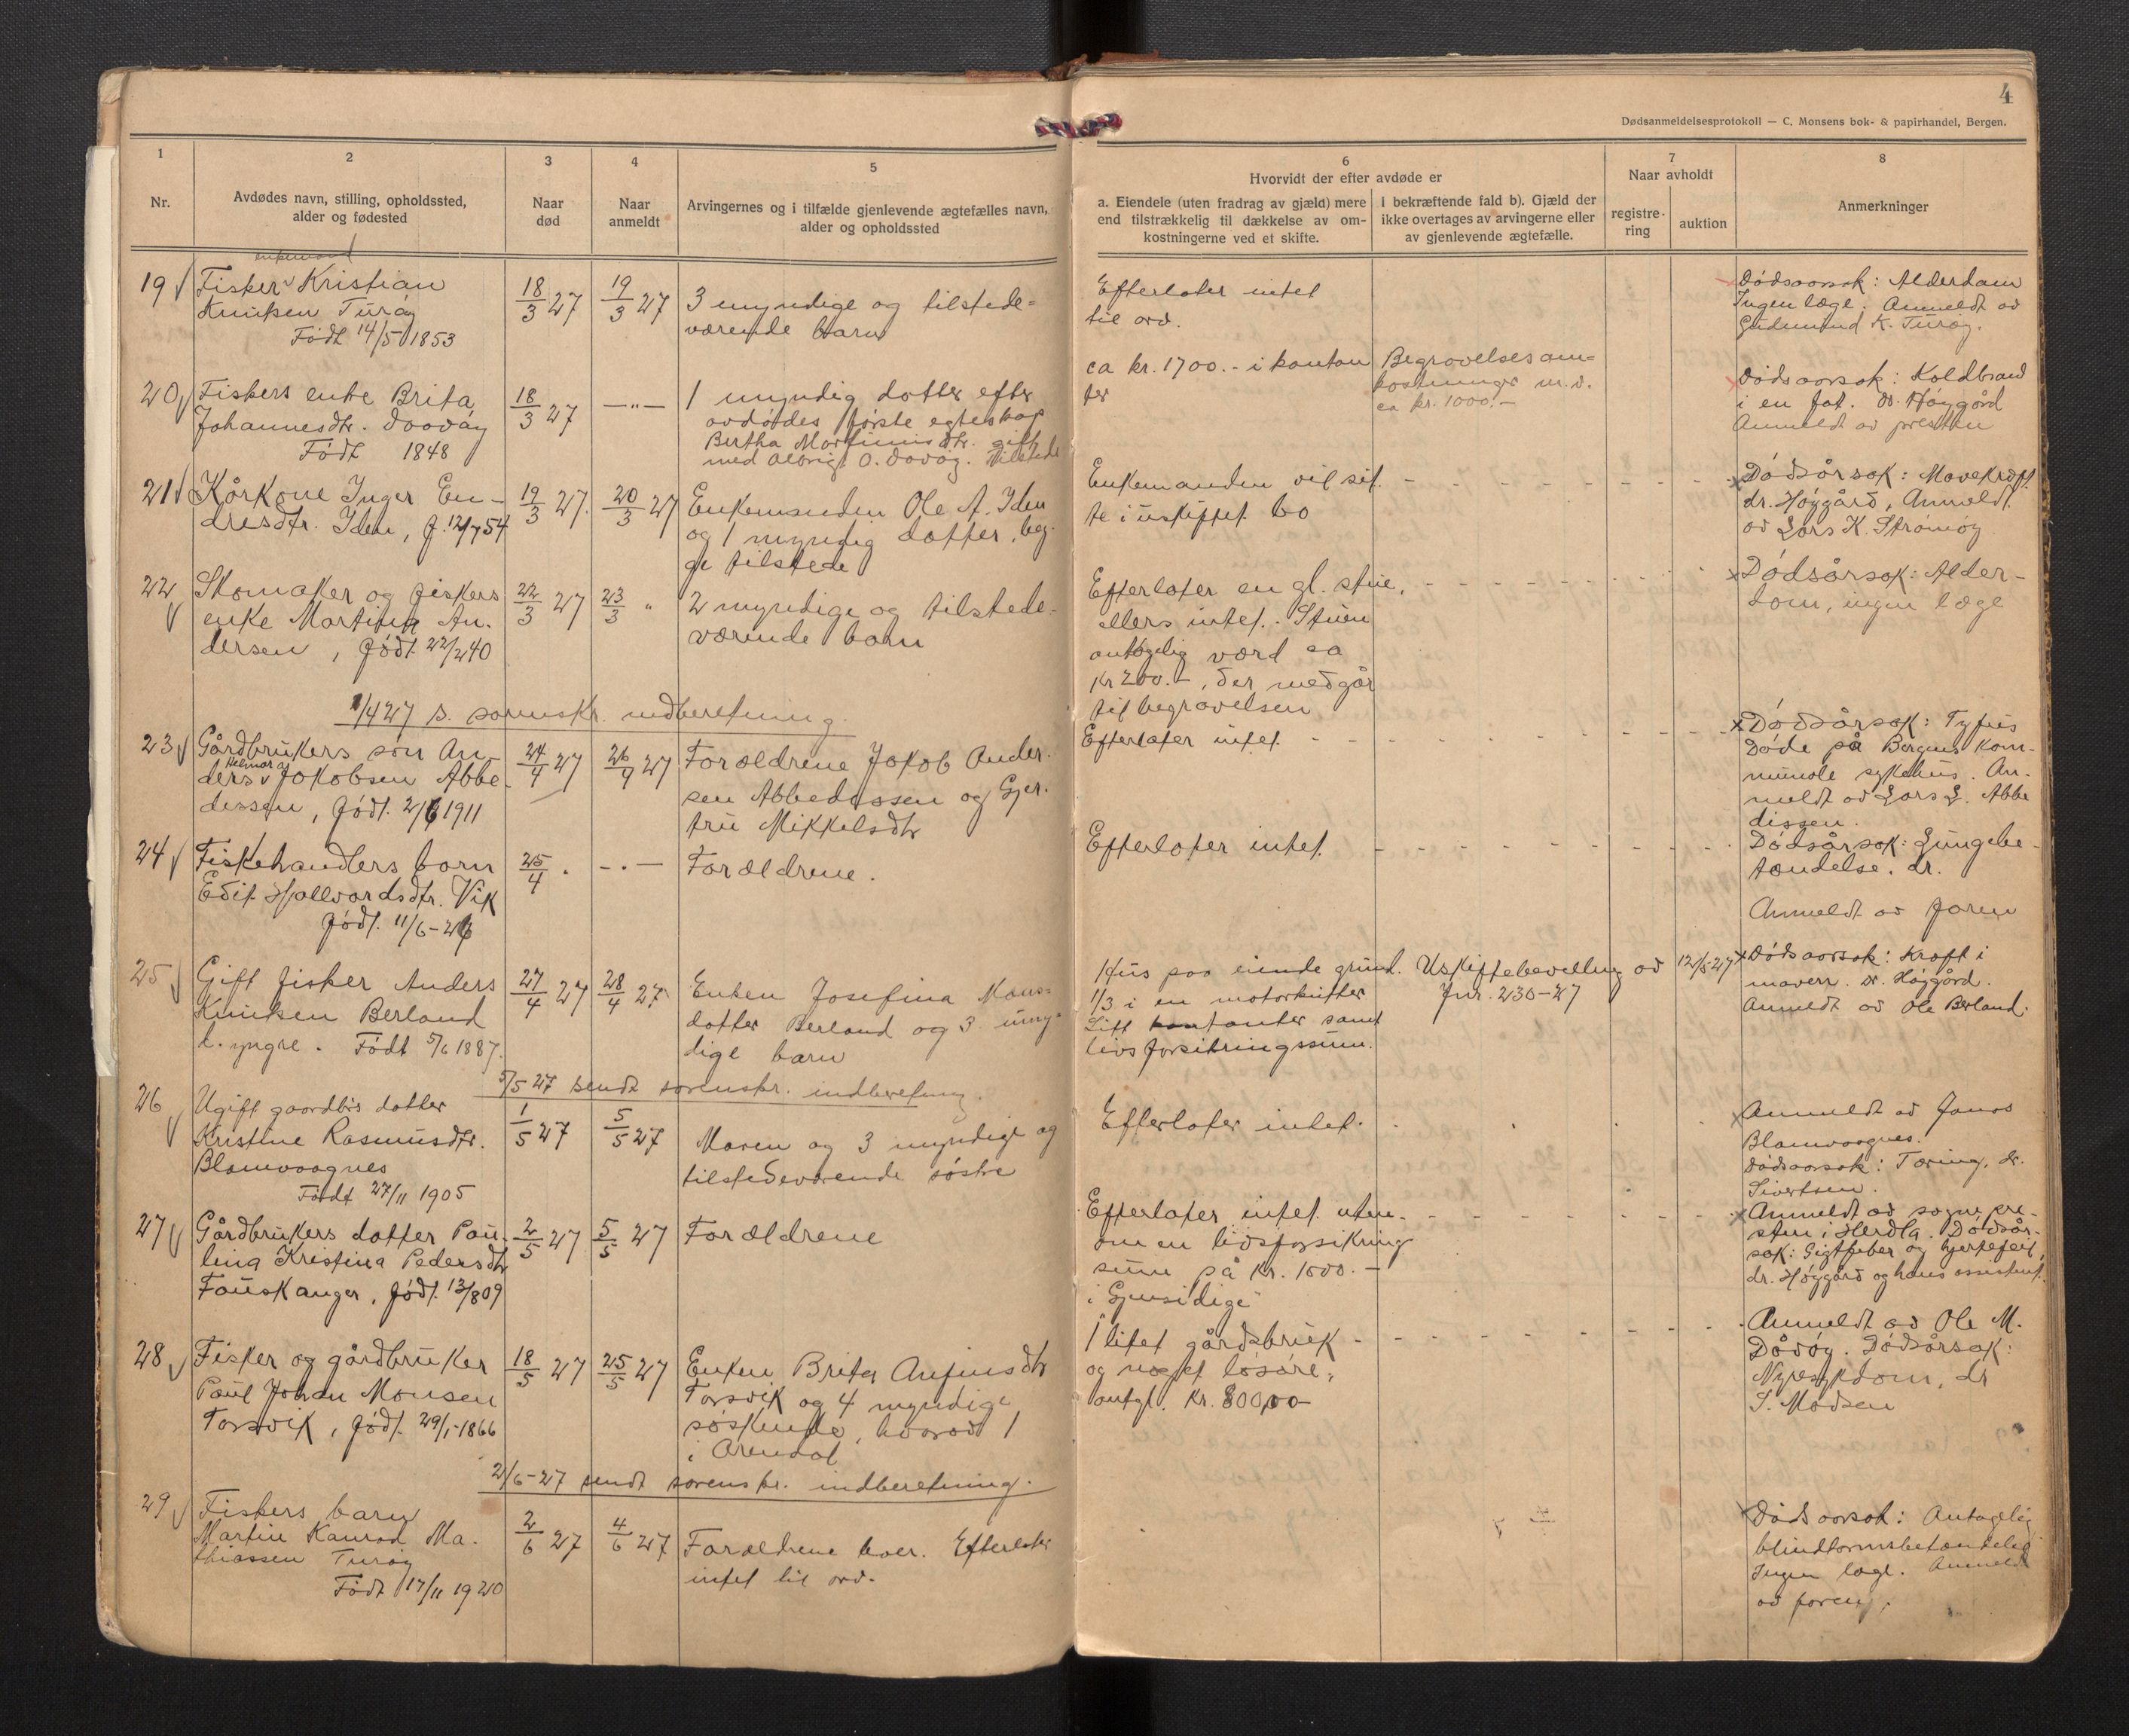 4
Dødsanmeldelsesprotokoll — C. Monsens bok- & papirhandel, Bergen.
1
2
3
4
5
6
7
8
Nr.
Avdødes navn, stilling, opholdssted,
alder og fødested
Naar
død
Naar
anmeldt
Arvingernes og i tilfælde gjenlevende ægtefælles navn,
alder og opholdssted
Hvorvidt der efter avdøde er
a. Eiendele (uten fradrag av gjæld) mere
end tilstrækkelig til dækkelse av om-
kostningerne ved et skifte.
i bekræftende fald b). Gjæld der
ikke overtages av arvingerne eller
av gjenlevende ægtefælle.
Naar avholdt
registre-
ring
auktion
Anmerkninger
19
enkemand
Fisker Kristian
Knutsen Turøy
Født 14/5 1853
18/3 27
19/3 27
3 myndige og tilstede-
værende barn
Efterlater intet
til ord.
Dødsaarsak: Alderdom
Ingen læge. Anmeldt av
Gudmund K. Turøy.
20
Fiskers enke Brita
Johannesdtr. Davøy
Født 1848
18/3 27
—"—
1 myndig datter efter
avdødes første egteskap
Bertha Martinusdtr. gift
med Aldrigt O. Davøy. Tilstede
ca kr. 1700.- i kontan
ter
Begravelsesom-
kostninger m.v.
ca kr. 1000.-
Dødsaarsak: Koldbrand
i en fot. dr. Høygård
Anmeldt av presten
21
Kårkone Inger En-
dresdtr. Iden, f. 12/7 54
19/3 27.
20/3 27
Enkemanden Ole A. Iden
og 1 myndig datter, beg-
ge tilstede
Enkemanden vil sit-
te i uskiftet bo
Dødsårsak: Mavekræft.
dr. Høygård, Anmeldt
av Lars K. Strømøy
22
Skomaker og fiskers
enke Martina An-
dersen, født 22/2 40
22/3 27
23/3 "
2 myndige og tilstede-
værende barn
Efterlater en gl. stue,
ellers intet. Stuen
antagelig værd ca
kr 200.-, der medgår
til begravelsen
Dødsårsak: Alder-
dom, ingen læge
1/4 27 s. sorenskr. indberetning.
23
Gårdbrukers søn An-
Helmer
ders Jakobsen Abbe-
dissen, født 2/6 1911
24/4 27
26/4 27
Forældrene Jakob Ander-
sen Abbedissen og Gjer-
tru Mikkelsdtr
Efterlater intet
Dødsårsak: Tyfus
Døde på Bergens kom-
munale sykehus. An-
meldt av Lars L. Abbe
dissen.
24
Fiskehandlers barn
Edit Hallvardsdtr. Vik
født 11/6-26
25/4 .
—.—
Forældrene.
Efterlater intet.
Dødsårsak: Lungebe-
tændelse. dr.
Anmeldt av faren
25
Gift fisker Anders
Knutsen Berland
d. yngre. Født 5/6 1887.
27/4 27
28/4 27
Enken Josefina Mons-
datter Berland og 3 umyn-
dige barn
Hus paa eiende grund.
1/3 i en motorkutter
Litt kontanter samt
livsforsikringssum.
Uskiftebevilling av 12/5-27
Jnr. 230-27
Dødsaarsak: Kræft i
maven. dr. Høygård.
Anmeldt av Ole Berland.
5/5 27 sendt sorenskr. indberetning.
26
Ugift gaardbrs datter
Kristine Rasmusdtr.
Blomvaagnes
Født 27/11 1905
1/5 27
5/5 27
Moren og 3 myndige og
tilstedeværende søstre
Efterlater intet.
Anmeldt av Jonas
Blomvaagnes.
Dødsaarsak: Tæring, dr.
Sivertsen.
27
Gårdbrukers datter Pau-
lina Kristina Pedersdtr
Fauskanger, født 13/8 09
2/5 27
5/5 27
Forældrene
Efterlater intet uten-
om en livsforsikring
sum på kr. 1500.-
i Gjensidige
Anmeldt av sogne pre-
sten i Herdla. Dødsår-
sak: Gigtfeber og hjertefeil,
dr. Høygård og hans assistent.
28
Fisker og gårdbruker
Paul Johan Monsen
Torsvik, født 29/1-1866
18/5 27
25/5 27
Enken Brita Anfinsdtr
Torsvik og 4 myndige
søskende, hvorav 1
i Arendal
1 litet gårdsbruk
og noget løsøre,
antgl. kr. 800,00
Anmeldt av Ole M.
Dåvøy. Dødsårsak:
Nyresykdom, dr
S. Madsen
2/6-27 sendt sorenskr. indberetning.
29
Fiskers barn
Martin Konrad Ma-
thiassen Turøy
Født 17/11 1920
2/6 27
4/6 27
Forældrene lever. Efterlater
intet til ord.
Dødsaarsak: Antagelig
blindtarmsbetændelse
Ingen læge. Anmeldt
av faren.